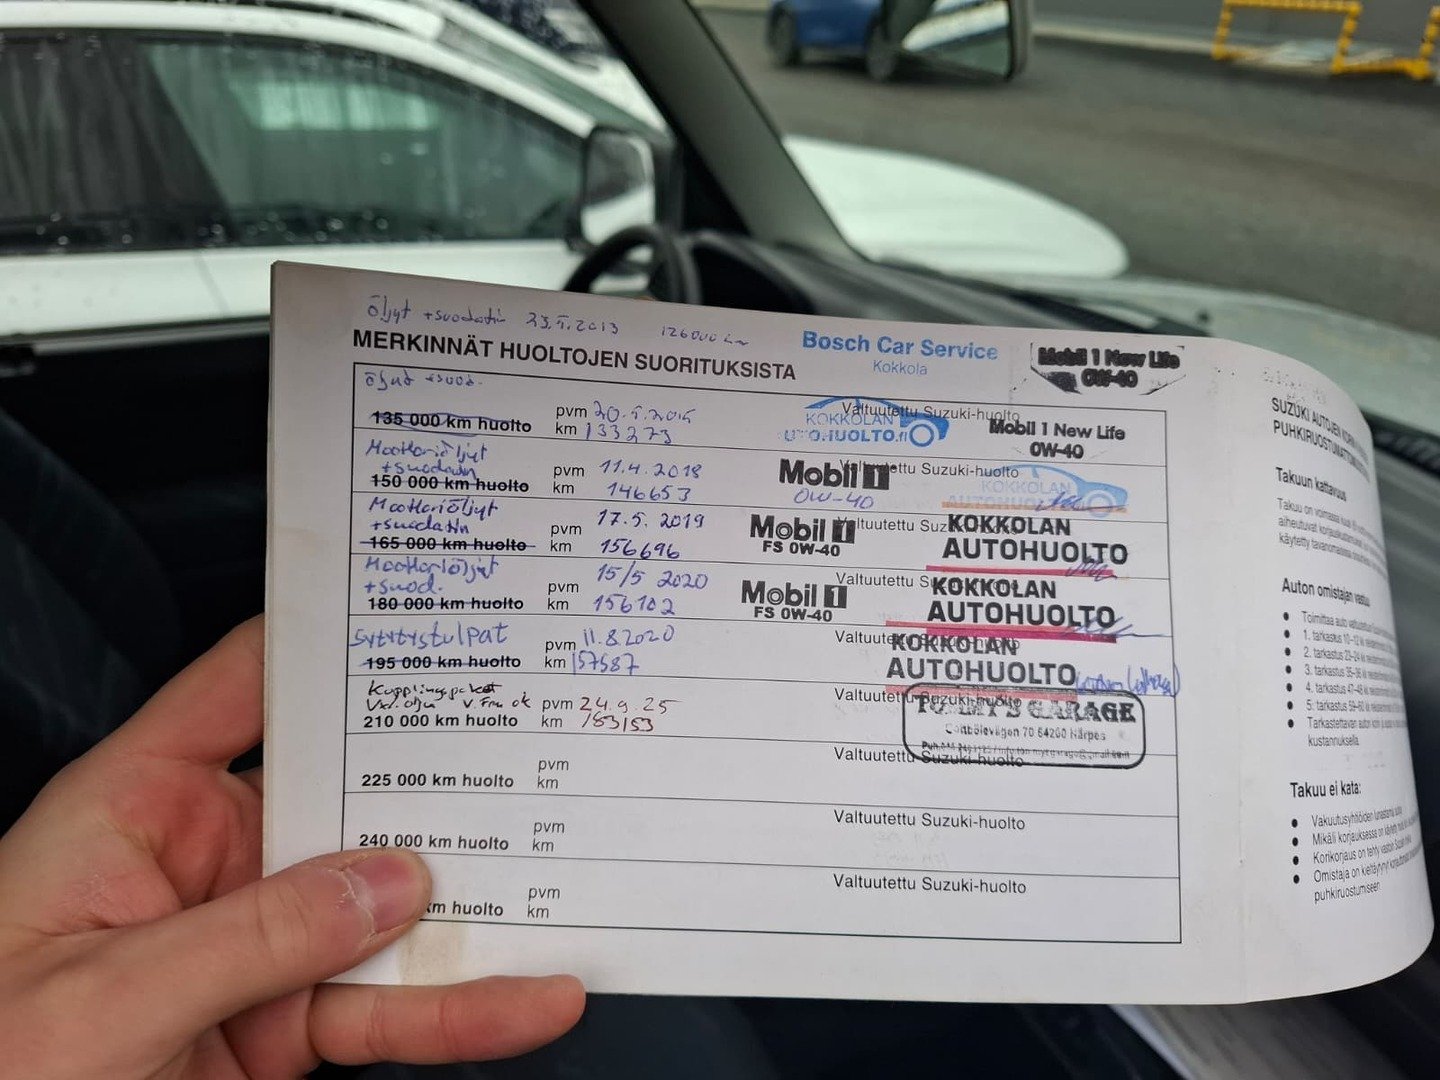 öljyt +suodatin 23.5.2013 126000 km
Bosch Car Service
Kokkola
Mobil 1 New Life
0W-40
MERKINNÄT HUOLTOJEN SUORITUKSISTA
öljyt +suod.
135 000 km huolto
pvm 20.5.2015
km 133273
Valtuutettu Suzuki-huolto
KOKKOLAN
AUTOHUOLTO.fi
Mobil 1 New Life
0W-40
Moottoriöljyt
+suodatin
150 000 km huolto
pvm 11.4.2018
km 146653
Valtuutettu Suzuki-huolto
Mobil 1
0W-40
KOKKOLAN
AUTOHUOLTO
Moottoriöljyt
+suodatin
165 000 km huolto
pvm 17.5.2019
km 156696
Mobil 1
FS 0W-40
KOKKOLAN
AUTOHUOLTO
Moottoriöljyt
+suod.
180 000 km huolto
pvm 15/5 2020
km 156102
Valtuutettu Suzuki-huolto
Mobil 1
FS 0W-40
KOKKOLAN
AUTOHUOLTO
Sytytystulpat
195 000 km huolto
pvm 11.8.2020
km 157587
Valtuutettu Suzuki-huolto
KOKKOLAN
AUTOHUOLTO
Kopplingspaket
210 000 km huolto
pvm 24.9.25
km 183153
Valtuutettu Suzuki-huolto
GARAGE
70 64200 Närpes
225 000 km huolto
pvm
km
Valtuutettu Suzuki-huolto
240 000 km huolto
pvm
km
Valtuutettu Suzuki-huolto
km huolto
pvm
km
Valtuutettu Suzuki-huolto
SUZUKI AUTOJEN
PUHKIRUOSTUMATTOMUUS
Takuun kattavuus
Takuu on voimassa
aiheutuvat
käytetty
Auton omistajan vastuu
• Toimittaa auto
• 1. tarkastus 10–12 kk
• 2. tarkastus 23–24 kk
• 3. tarkastus 35–36 kk
• 4. tarkastus 47–48 kk
• 5. tarkastus 59–60 kk
• Tarkastettavan auton
kustannuksella.
Takuu ei kata:
• Vakuutusyhtiöiden
• Mikäli korjauksessa on käytetty
• Korikorjaus on tehty
• Omistaja on kieltäytynyt
puhkiruostumiseen